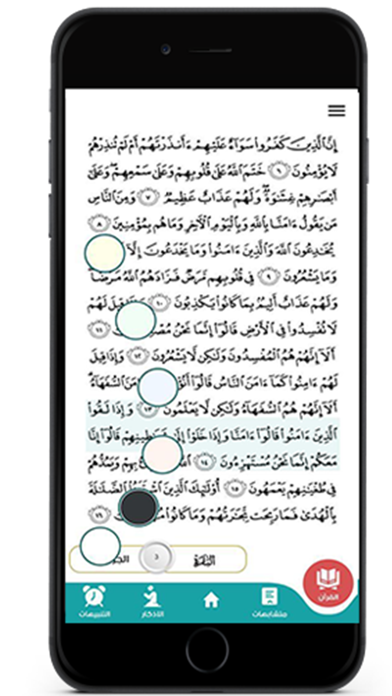 إِنَّ الَّذِينَ كَفَرُوا سَوَاءٌ عَلَيْهِمْ ءَأَنذَرْتَهُمْ أَمْ لَمْ تُنذِرْهُمْ
لَا يُؤْمِنُونَ ٦ خَتَمَ اللَّهُ عَلَىٰ قُلُوبِهِمْ وَعَلَىٰ سَمْعِهِمْ وَعَلَىٰ
أَبْصَٰرِهِمْ غِشَٰوَةٌ وَلَهُمْ عَذَابٌ عَظِيمٌ ٧ وَمِنَ النَّاسِ
مَن يَقُولُ ءَامَنَّا بِاللَّهِ وَبِالْيَوْمِ الْآخِرِ وَمَا هُم بِمُؤْمِنِينَ ٨
يُخَٰدِعُونَ اللَّهَ وَالَّذِينَ ءَامَنُوا وَمَا يَخْدَعُونَ إِلَّا
وَمَا يَشْعُرُونَ ٩ فِي قُلُوبِهِم مَّرَضٌ فَزَادَهُمُ اللَّهُ مَرَضًا
وَلَهُمْ عَذَابٌ أَلِيمٌ بِمَا كَانُوا يَكْذِبُونَ ١٠ قِيلَ لَهُمْ
لَا تُفْسِدُوا فِي الْأَرْضِ قَالُوا إِنَّمَا نَحْنُ ١١
أَلَا إِنَّهُمْ هُمُ الْمُفْسِدُونَ وَلَٰكِن لَّا يَشْعُرُونَ ١٢ وَإِذَا قِيلَ
لَهُمْ ءَامِنُوا كَمَا ءَامَنَ النَّاسُ قَالُوا السُّفَهَاءُ
أَلَا إِنَّهُمْ هُمُ السُّفَهَاءُ وَلَٰكِن لَّا يَعْلَمُونَ ١٣ وَإِذَا لَقُوا
الَّذِينَ ءَامَنُوا قَالُوا ءَامَنَّا وَإِذَا خَلَوْا إِلَىٰ قَالُوا إِنَّا
مَعَكُمْ إِنَّمَا نَحْنُ مُسْتَهْزِءُونَ ١٤ بِهِمْ وَيَمُدُّهُمْ
فِي طُغْيَٰنِهِمْ يَعْمَهُونَ ١٥ أُولَٰئِكَ الَّذِينَ الضَّلَٰلَةَ
بِالْهُدَىٰ فَمَا رَبِحَت تِّجَٰرَتُهُمْ وَمَا كَانُوا ١٦
البقرة 3
القرآن
متشابهات
الاذكار
التنبيهات